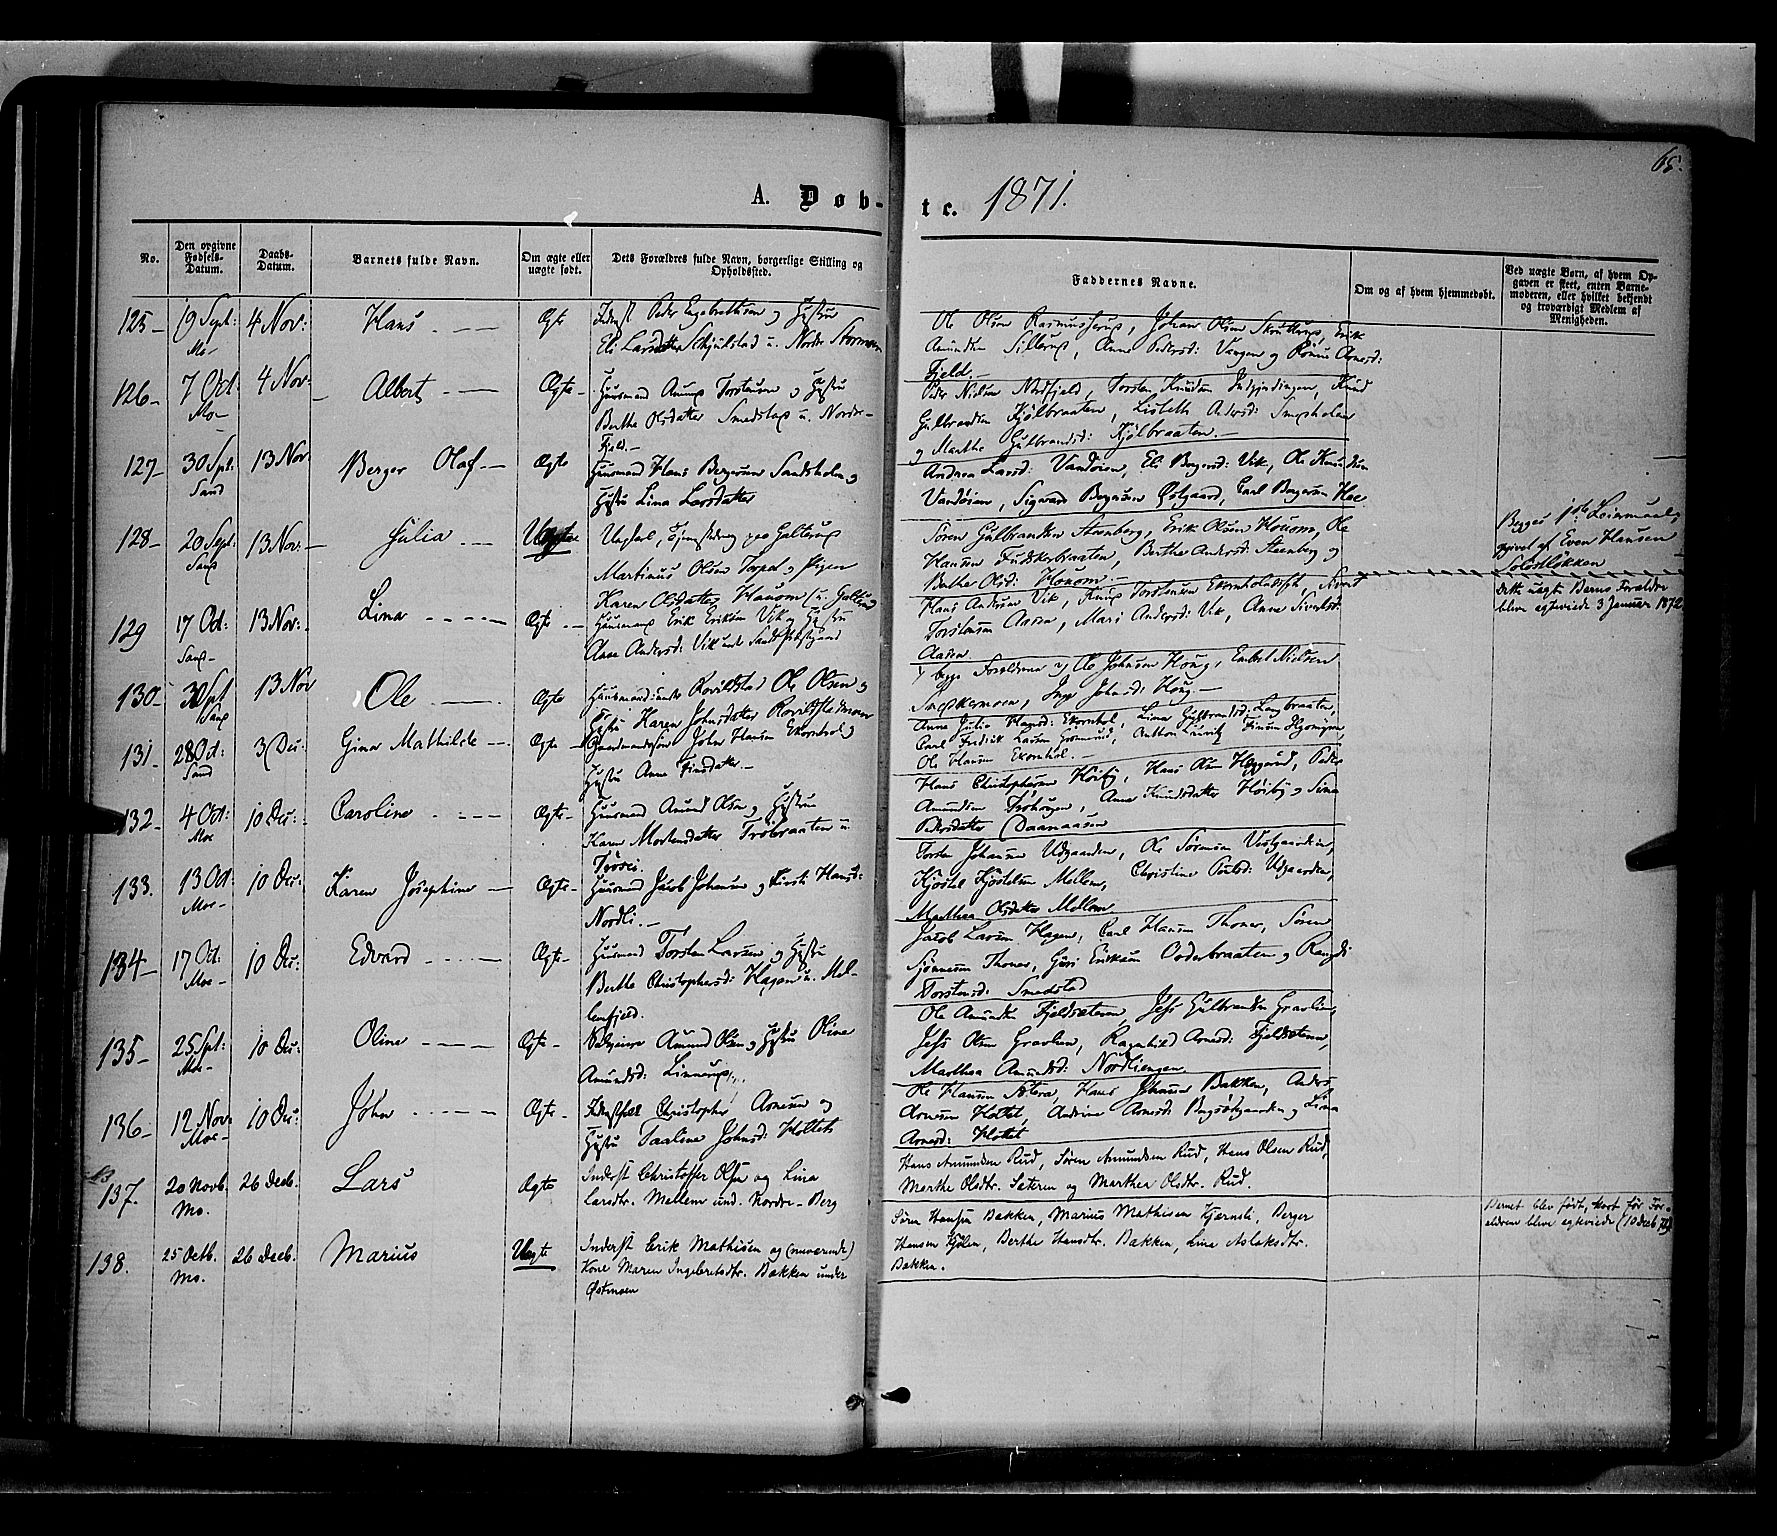 65.
A. Døb-te. 1871.
No.
Den opgivne Fødsels-Datum.
Daabs-Datum.
Barnets fulde Navn.
Om ægte eller uægte født.
Dets Forældres fulde Navn, borgerlige Stilling og Opholdssted.
Faddernes Navne.
Om og af hvem hjemmedøbt.
Ved uægte Børn, af hvem Opgaven er skeet, enten Barnemoderen, eller hvilket bekjendt og troværdigt Medlem af Menigheden.
125 19 Sept: Mo- 4 Nov: Hans Ægte
Inderst Peder Engebrethsen og Hustru
Eli Larsdatter Schjulstad u. Nordr Stormoen
Ole Olsen Rasmusserud, Johan Olsen Skruttrup, Erik
Amundsen Sillerud, Anne Pedersd: Vangen og Arnesd:
Fjeld.
126 7 Oct: Mo- 4 Nov: Albert Ægte
Huusmand Torstensen og Hustru
Berthe Olsdatter Smedstad u. Nordre-
Fjeld.
Peder Nielsen Nordfjeld, Torsten Knudsen, Knud
Gulbrandsen Kjølbraaten, Lisbeth Andersd:
og Marthe Gulbrandsd: Kjølbraaten.
127 30 Sept. Sand 13 Nov Berger Olaf Ægte
Huusmand Hans Bergersen Sandsholm og
Hustru Lina Larsdatter
Andrea Larsd: Vandøien, Eli Bergersd: Vik, Ole Knudsen
Vandøien, Sigvard Bergersen Østgaard, Carl Bergersen Hoe.
128 20 Sept: Sand 13 Nov: Julia Uægte
Ungkarl, Tjenestedreng paa Galterud
Martinus Olsen Torpet og Pigen
Karen Olsdatter Houom (u. Galterud
Søren Gulbrandsen Steenberg, Erik Olsen Houom, Ole
Hansen, Berthe Andersd: Steenberg og
Berthe Olsd: Houom.
Begges 1ste Leiermaal,
opgivet af Even Hansen
Solestløkken
Dette uægte Barns Forældre
bleve ægteviede 3 Januar 1872
129 17 Oct: Sand- 13 Nov: Lina Ægte
Huusmand Erik Eriksen Vik og Hustru
Anne Andersd: Vik under Sands Præstegaard
Hans Andersen Vik, Knud Torstensen, Sivert
Torstensen Aasen, Mari Andersd: Vik, Anne Sivertsd:
Aasen
130 30 Sept Sand 13 Nov Ole Ægte
Huusmand under Rovildstad Ole Olsen og
Hustru Karen Johnsdatter Rovildstadmoen
begge Forældrene og Ole Johnsen Houg, Embret Nielsen
Snedkermoen, Inge Johnsd: Houg.
131 28 Oct: Sand 3 Dec: Gina Mathilde Ægte
Gaardmandssøn John Hansen Ekornhol og
Hustru Anne Finsdatter.
Anne Julie Hansd: Ekornhol, Lina Gulbrandsd: Langbraaten,
Carl Fredrik Larsen, Anthon Lauritz Finsen,
Ole Hansen Ekornhol.
132 4 Oct: Moe 10 Dec: Caroline Ægte
Huusmand Amund Olsen og Hustru
Karen Mortensdatter Trøbraaten u.
Hans Christophersen Høiby, Hans Olsen Haggaard, Peder
Amundsen, Anne Knudsdatter Høiby og Sina
Pedersdatter Daanaasen
133. 13 Oct: Moe- 10 Dec: Karen Josephine Ægte
Huusmand Jacob Johansen og Kirsti Hansd:
Nordli.
Torsten Johansen Udgaarden, Ole Sørensen Vestgaarden,
Kjøstel Kjøstelsen Mellem, Christine Udgaarden,
Marthea Olsdatter Mellem
134 17 Oct: Moe- 10 Dec: Edvard Ægte
Huusmand Torsten Larsen og Hustru
Berthe Christophersd: Hagen u. Mel-
lemfjeld.
Jacob Larsen Hagen, Carl Hansen Thoner, Søren
Thoner, Guri Eriksen Odderbraaten og Rangdi
Torstensd: Smedstad
135 25 Sept: Moe- 10 Dec: Oline Ægte
Selveier Amund Olsen og Hustru Oline
Amundsd: Linnerud
Ole Amundsen Fjeldseteren, Jess Gulbrandsen Gravlien,
Jess Olsen Gravlien, Ragnhild Arnesd: Fjeldseteren,
Marthea Amundsd: Nordliengen
136 12 Nov: Moe- 10 Dec: John Ægte
Christopher Arnesen og
Hustru Pauline Johnsd: Holtet
Ole Hansen, Hans Johnsen Bakken, Anders
Arnesen Holtet, Andrine Arnesd: og Lina
Arnesd: Holtet
137. 20 Novb. Mo. 26 Decb. Lars Ægte
Inderst Christoffer Olsen og Lina
Larsdtr. Mellem und. Nordre-Berg
Hans Amundsen Rud, Søren Amundsen Rud, Hans Olsen Rud,
Marthe Olsdtr. Sateren og Marthea Olsdtr. Rud.
138. 25 Octb. Mo. 26 Decb. Marius Uægte
Inderst Erik Mathisen og (nuværende)
Kone Maren Ingebretsdtr. Bakken under
Østmoen
Søren Hansen Bakken, Marius Mathisen Kjernsli, Berger
Hansen Kjølen, Berthe Hansdtr. Bakken, Lina Aslaksdtr.
Bakken.
Barnet blev født, kort før For-
ældrene bleve ægteviede (10 Decb. 71)